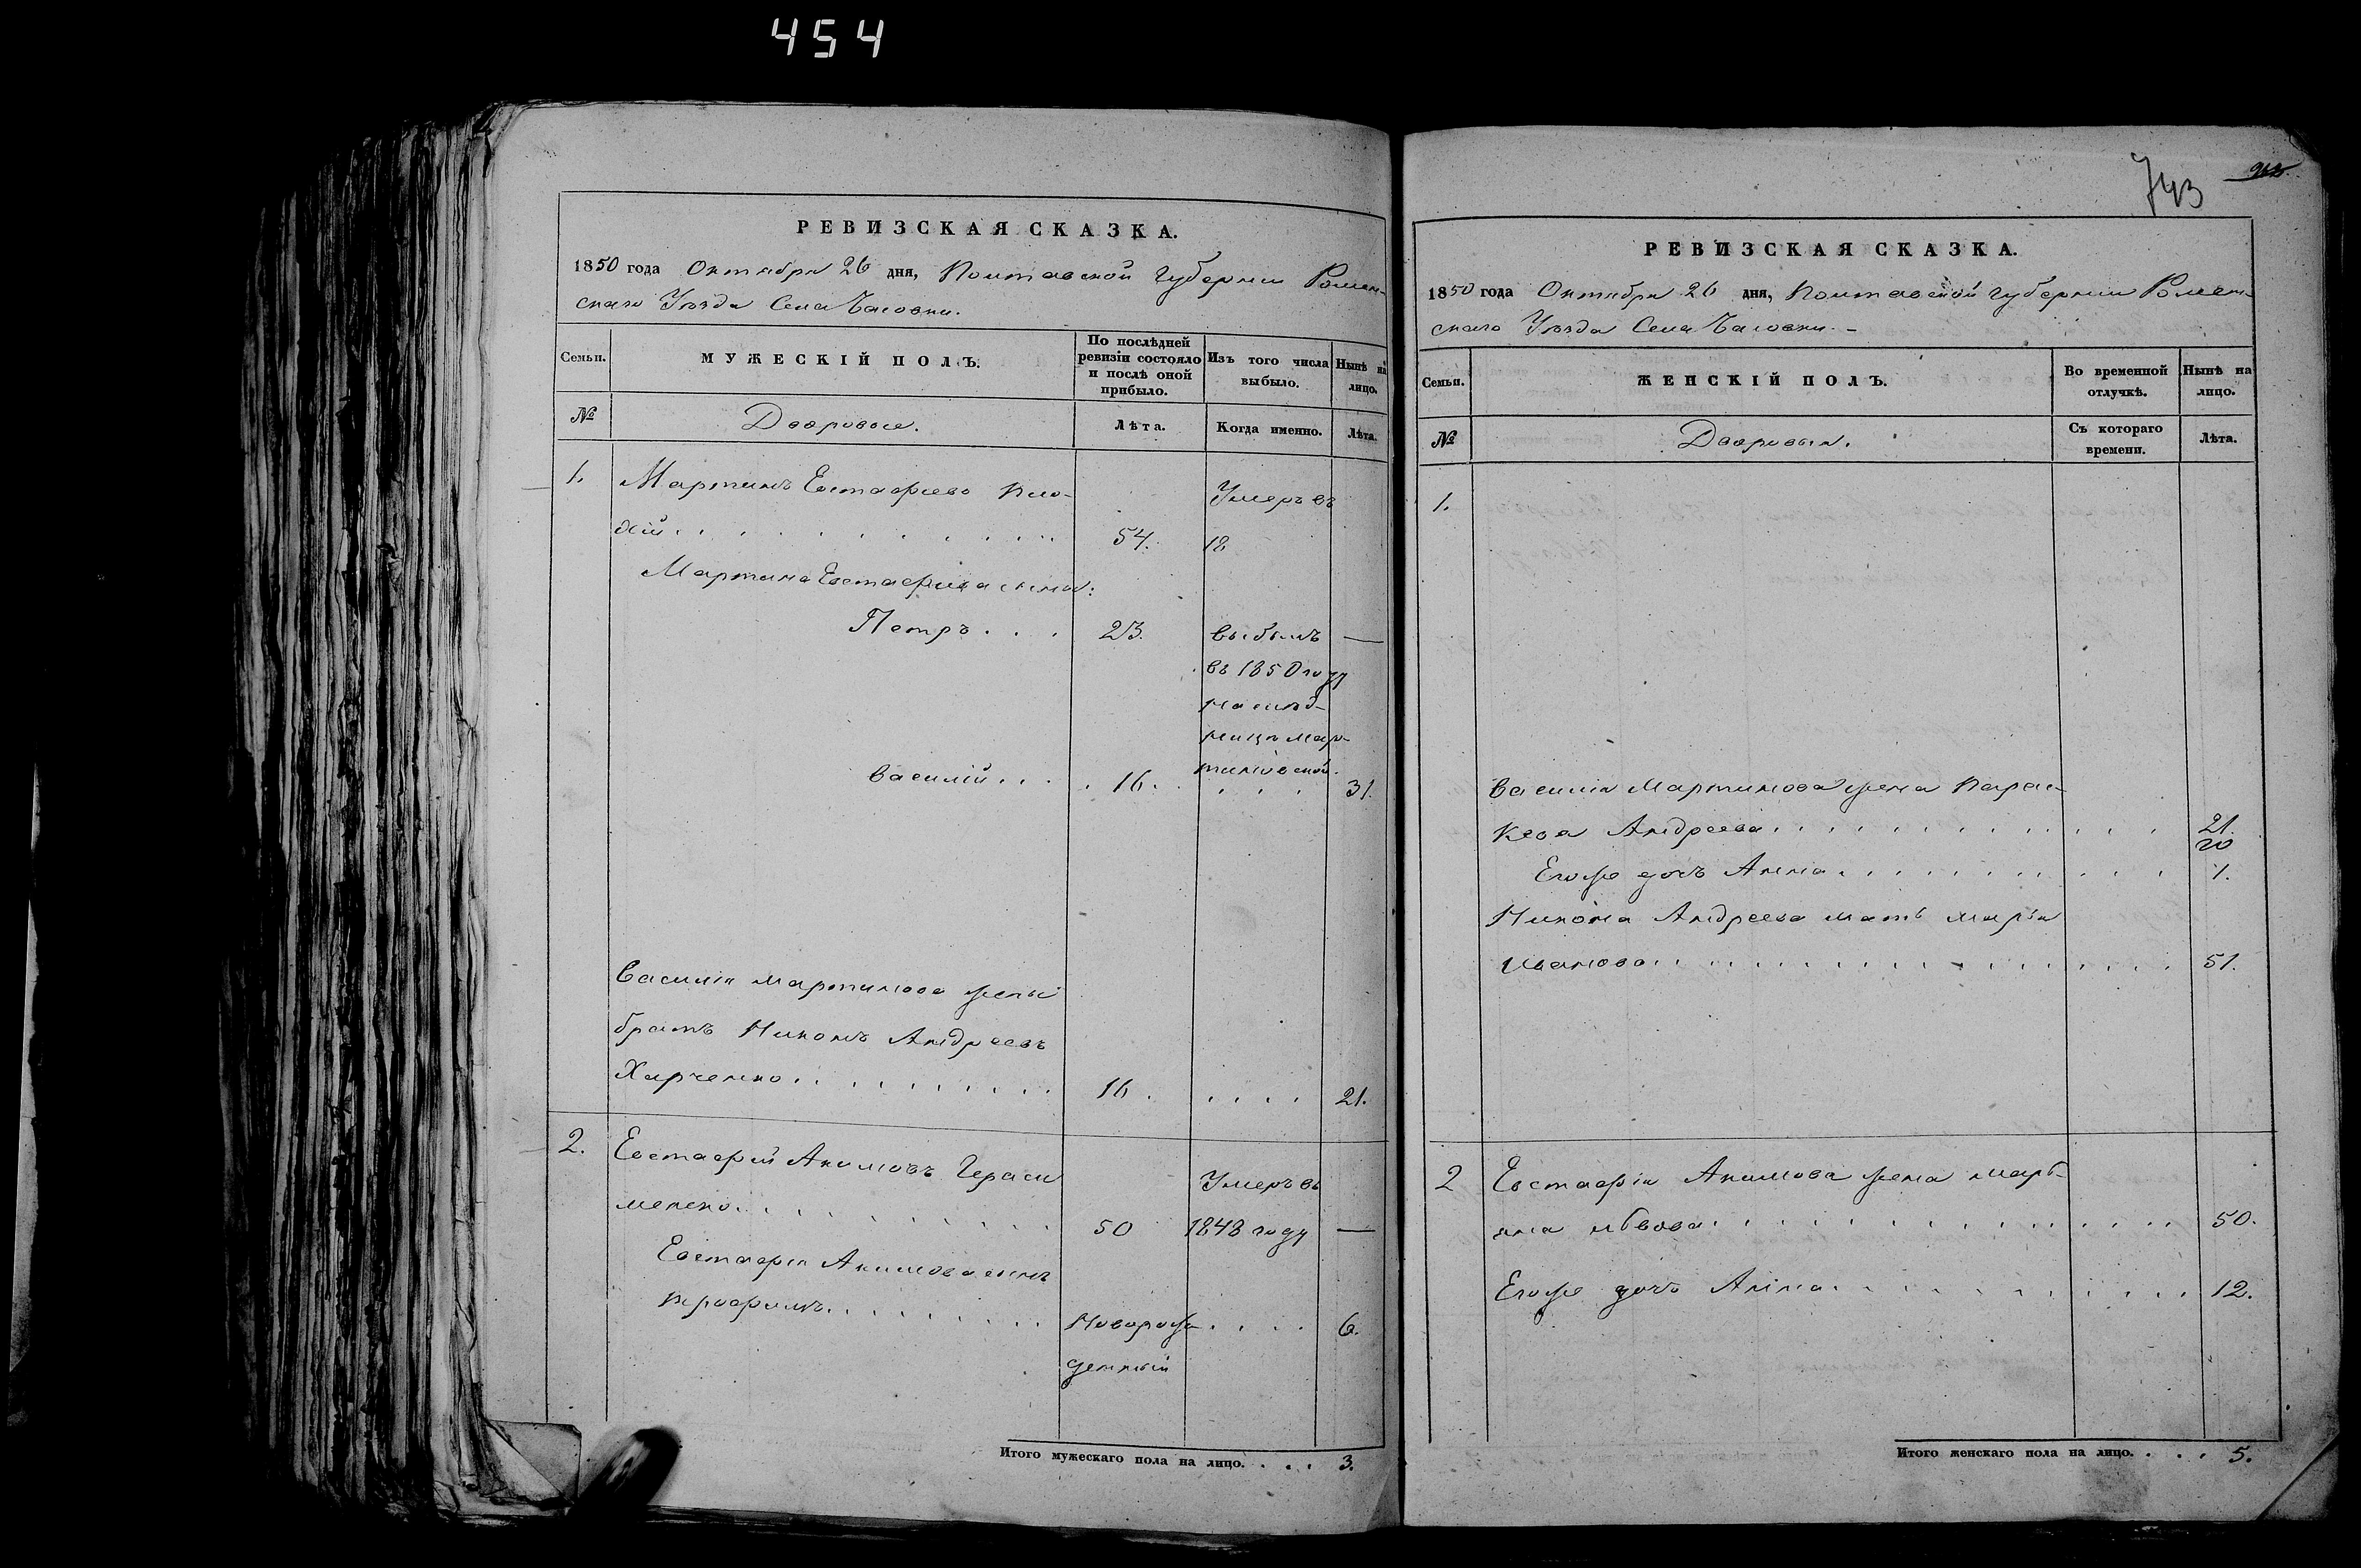 454
РЕВИЗСКАЯ СКАЗКА.
1850 года Октября 26 дня, Полтавской Губернии Ромен-
скаго Уѣзда Села
Семьи.
МУЖЕСКІЙ ПОЛЪ.
По послѣдней ревизіи состояло и послѣ оной прибыло.
Изъ того числа выбыло.
Нынѣ на лицо.
№
Дворовые.
Лѣта.
Когда именно.
Лѣта.
1. Мартинъ Евстафіевъ Умеръ въ
54. 18
Мартина Евстафіева сыны:
Петръ . . . 23. выбылъ —
въ 1850 году
Василій . . . 16. . . . 31.
Василія Мартинова жены
братъ Никонъ Андреевъ
Харченко . . . . . . . . . . 16. . . . . 21.
2. Евстафій Акимовъ Гераси
менко . . . . . . . . . . Умеръ въ
50 1848 году —
Евстафія Акимова сынъ
Трофимъ . . . . . . . . Новорож . . . . 6.
денный
Итого мужескаго пола на лицо. . . . . 3.
743
РЕВИЗСКАЯ СКАЗКА.
1850 года Октября 26 дня, Полтавской Губернии Ромен-
скаго Уѣзда Села
Семьи.
ЖЕНСКІЙ ПОЛЪ.
Во временной отлучкѣ.
Нынѣ на лицо.
№
Дворовыя.
Съ котораго времени.
Лѣта.
1.
Василія Мартинова жена Парас-
кева Андреева . . . . . . . . . . . . 21.
20
Егоже дочь Анна . . . . . . . . . . 1.
Никона Андреева мать Марія
Иванова . . . . . . . . . . . . . . . . 51.
2 Евстафія Акимова жена Марь-
яна Львова . . . . . . . . . . . . . . . 50.
Егоже дочь Анна . . . . . . . . . . . 12.
Итого женскаго пола на лицо. . . . . 5.